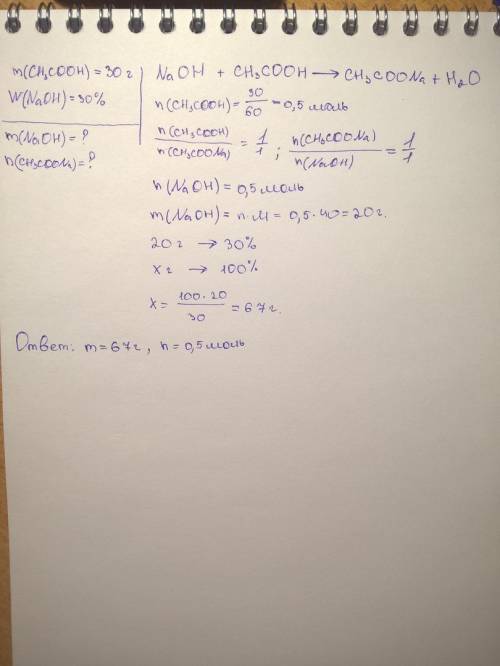 m(CH₃COOH) = 30 г
W(NaOH) = 30%
m(NaOH) = ?
n(CH₃COONa) = ?
NaOH + CH₃COOH → CH₃COONa + H₂O
n(CH₃COOH) = 30/60 = 0,5 моль
n(CH₃COOH)/n(CH₃COONa) = 1/1 ; n(CH₃COONa)/n(NaOH) = 1/1
n(NaOH) = 0,5 моль
m(NaOH) = n·M = 0,5·40 = 20 г.
20 г → 30%
x г → 100%
x = 100·20/30 = 67 г.
Ответ: m = 67 г, n = 0,5 моль